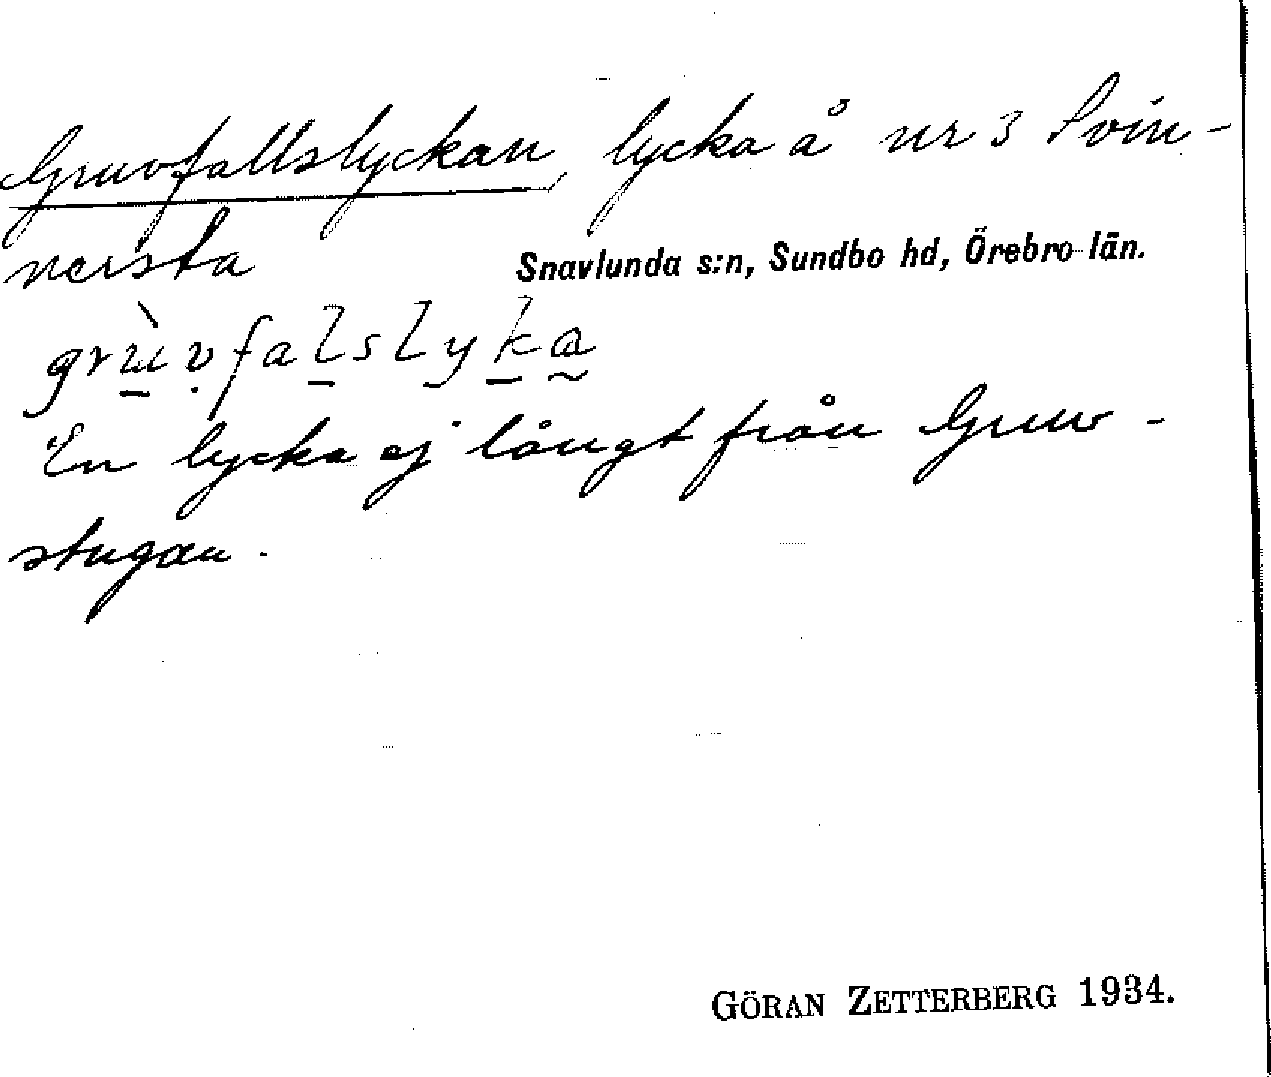 Gruvfallslyckan, lycka å nr 3 Svin-
nersta
Snavlunda s:n, Sundbo hd, Örebro län.
grùvfalslyka
En lycka ej långt från Gruv-
stugan.
GÖRAN ZETTERBERG 1934.